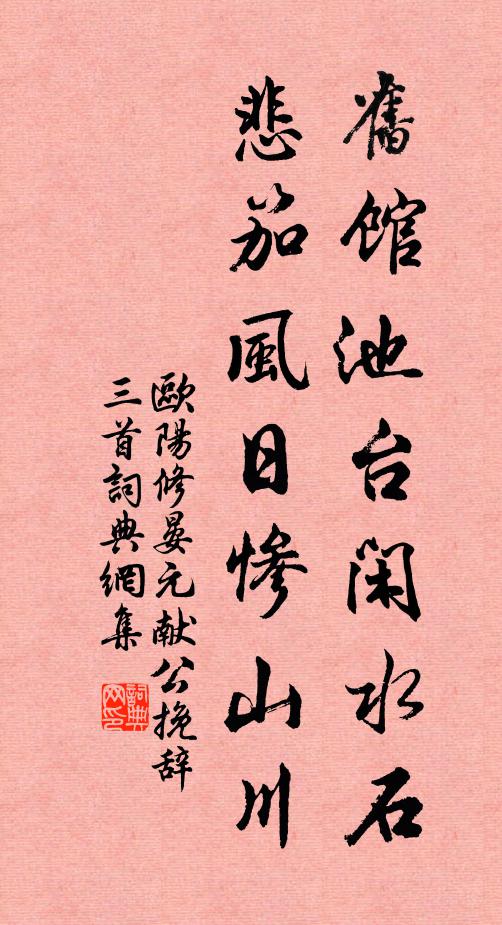 舊館池台閑水石
悲笳風日慘山川
歐陽修晏元献公挽辞
三首詞典網集
詞典网印